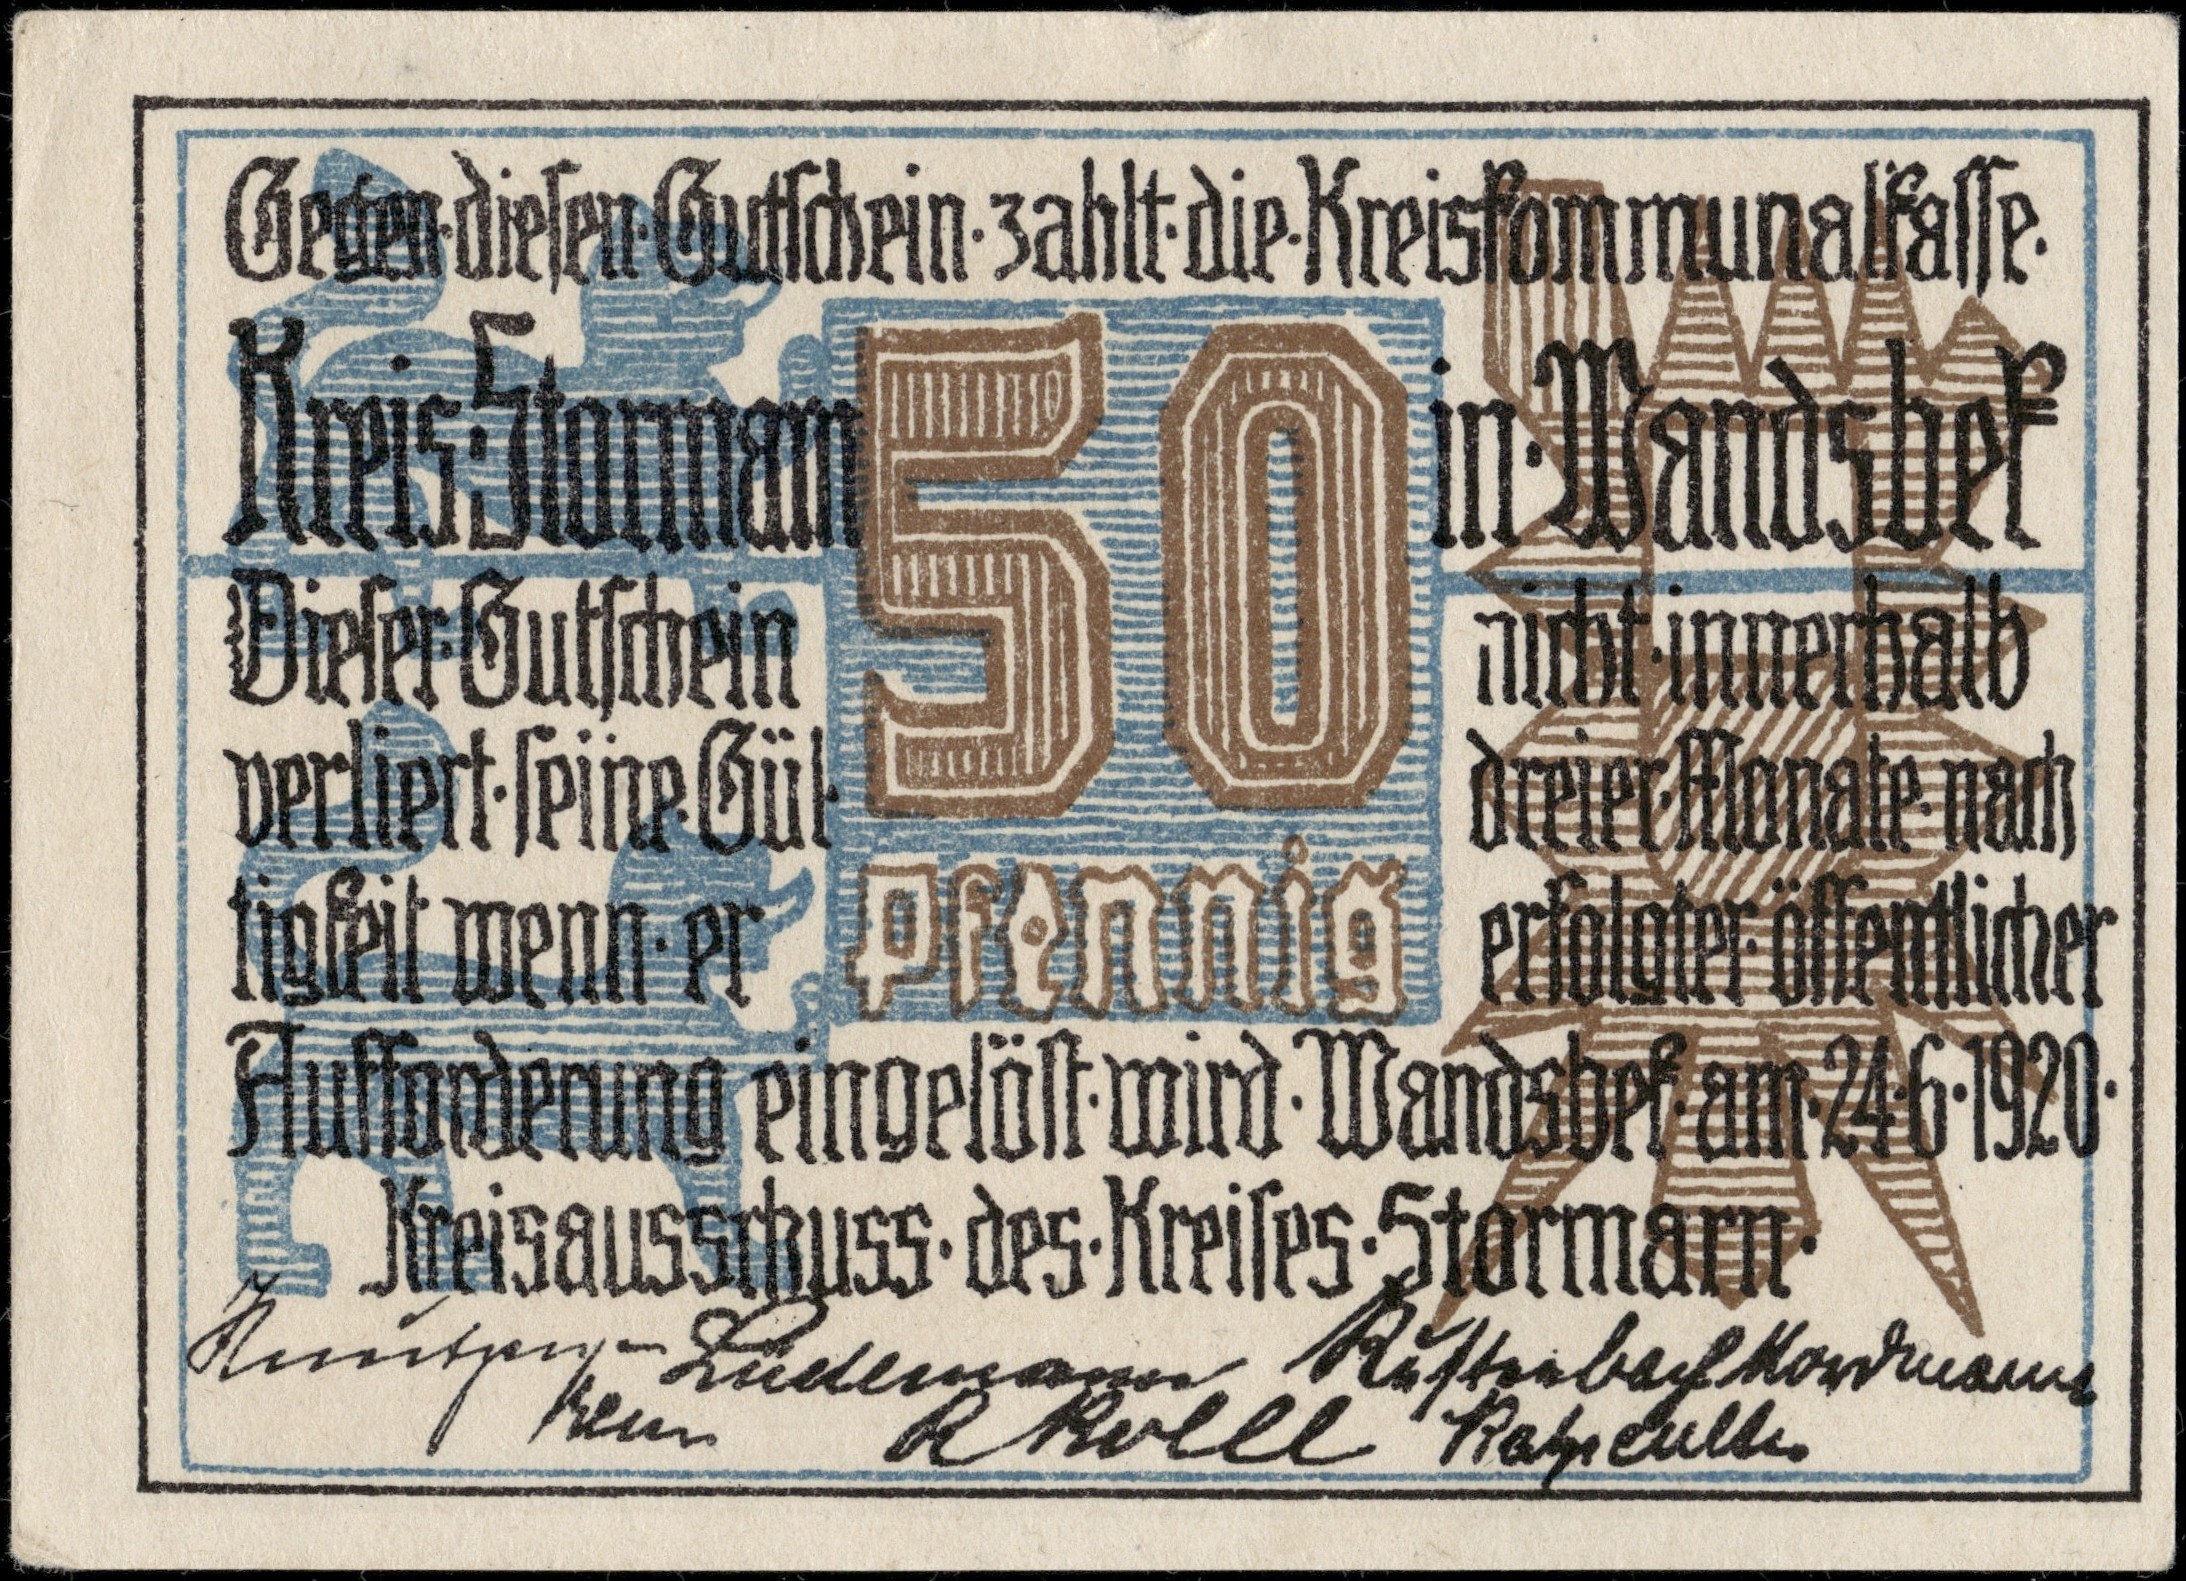 Gegen·diesen·Gutschein·zahlt·die·Kreiskommunalkasse·
Kreis·Stormarn 50 in·Wandsbek
Dieser·Gutschein nicht·innerhalb
verliert·seine·Gül· dreier·Monate·nach
Pfennig
tigkeit wenn·er erfolgter·öffentlicher
Aufforderung eingelöst·wird·Wandsbek·am·24·6·1920·
Kreisausschuss·des·Kreises·Stormarn·
Lüdemann Nordmann